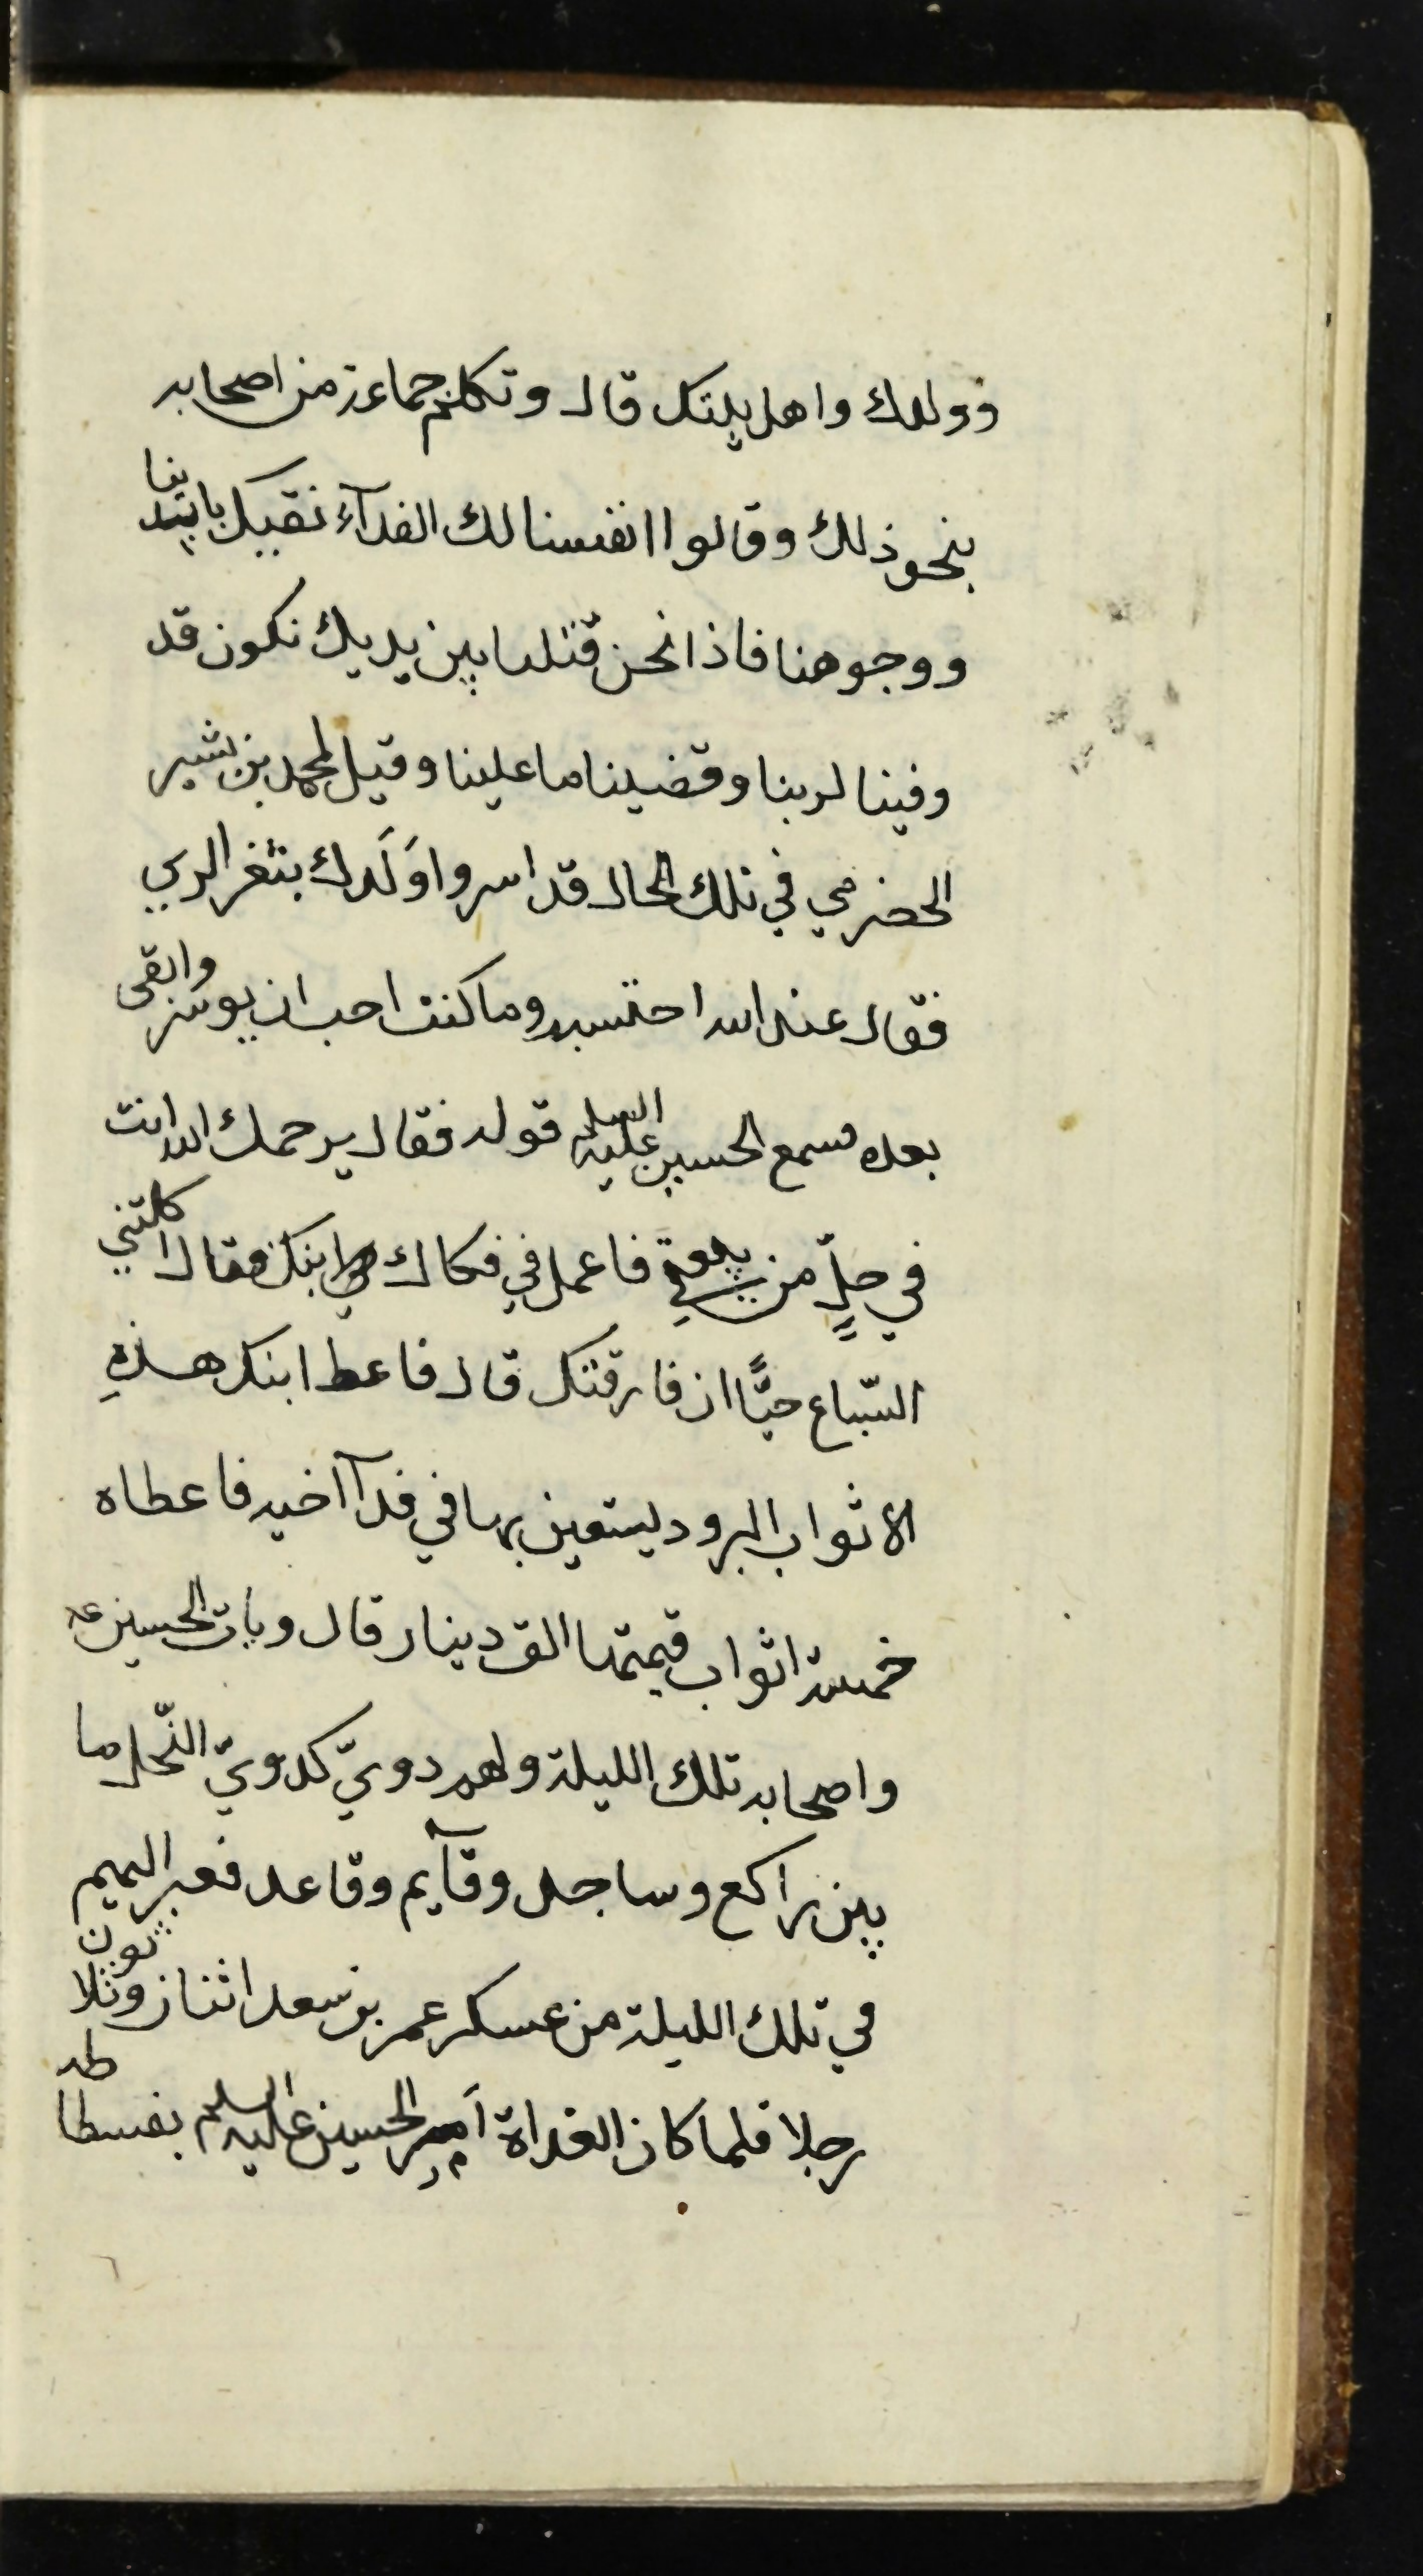 وولدك واهل بيتك قال وتكلم جماعة من اصحابه
بنحو ذلك وقالوا انفسنا لك الفدآء نقيك بايدينا
ووجوهنا فاذا نحن قتلنا بين يديك نكون قد
وفينا لربنا وقضينا ما علينا وقيل لمحمد بن بشير
الحضرمي في تلك الحال قد اسروا وَلَدك بثغر الري
فقال عند الله احتسبه وما كنت احب ان يوسر وابقى
بعده فسمع الحسين عليه السلم قوله فقال يرحمك الله انت
في حلٍّ من بيعتي فاعمل في فكاك ابنك فقال اكلتني
السّباع حيًّا ان فارقتك قال فاعط ابنك هذهِ
الاثواب البرود ليستعين بها في فدآ اخيه فاعطاه
خمسة اثواب قيمتها الف دينار قال وبات الحسين عـ
واصحابه تلك الليلة ولهم دويّ كدويّ النّحل ما
بين راكع وساجد وقآيم وقاعد فعبر اليهم
في تلك الليلة من عسكر عمر بن سعد اثنان وثلاثون
رجلا فلما كان الغداة اَمر الحسين عليه السلم بفسطاطه